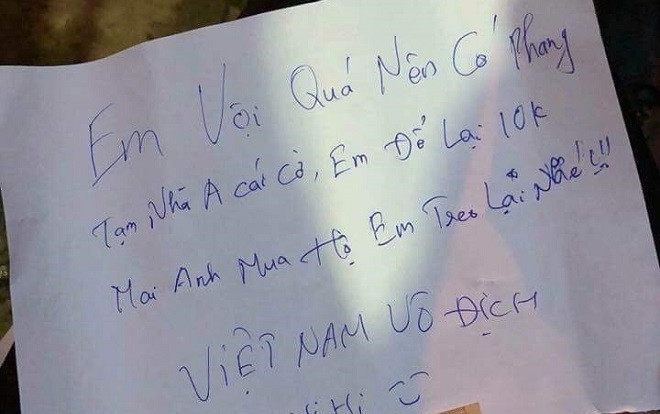 Em Vội Quá Nên Có Phang
Tạm Nhà A cái cờ, Em Để Lại 10K
Mai Anh Mua Hộ Em Treo Lại Nhé!!!
VIỆT NAM VÔ ĐỊCH
Hi Hi